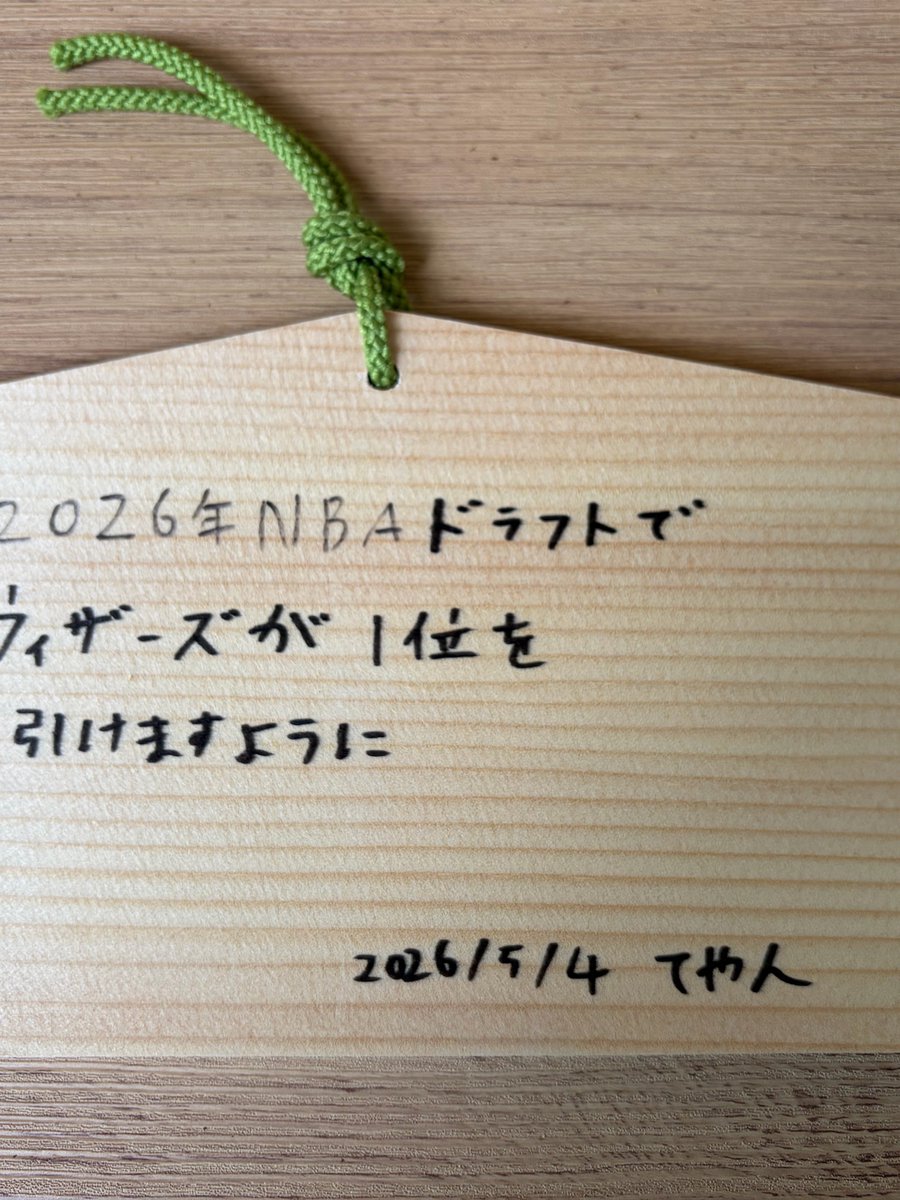 2026年NBAドラフトで
ウィザーズが1位を
引けますように
2026/5/4 てやん